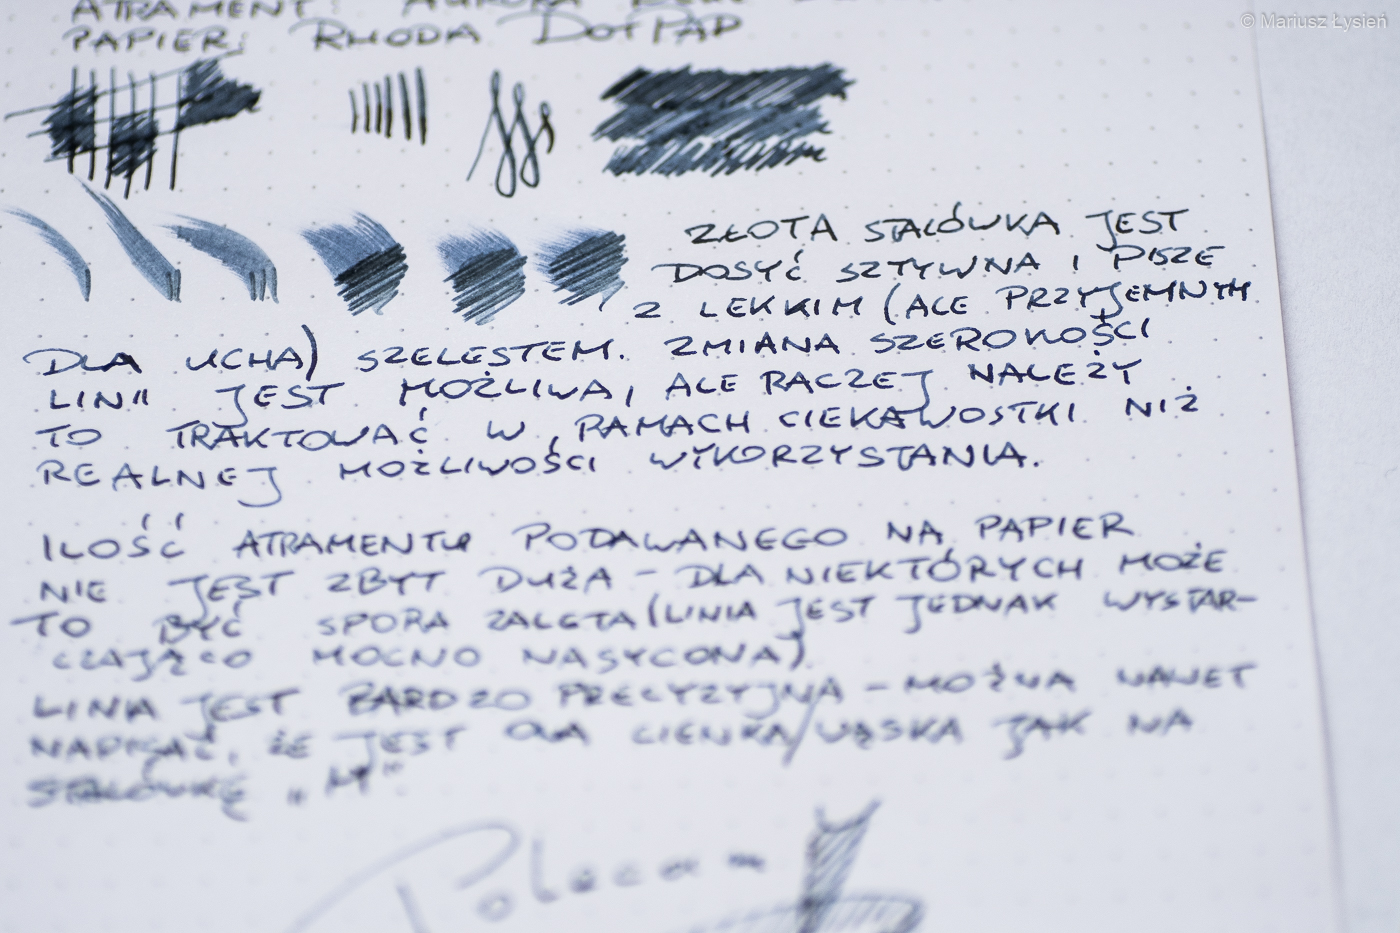 © Mariusz Łysień
ATRAMENT: AURORA
PAPIER: RHODIA DOTPAD
ZŁOTA STALÓWKA JEST
DOSYĆ SZTYWNA I PISZE
Z LEKKIM (ALE PRZYJEMNYM
DLA UCHA) SZELESTEM. ZMIANA SZEROKOŚCI
LINII JEST MOŻLIWA, ALE RACZEJ NALEŻY
TO TRAKTOWAĆ W RAMACH CIEKAWOSTKI NIŻ
REALNEJ MOŻLIWOŚCI WYKORZYSTANIA.
ILOŚĆ ATRAMENTU PODAWANEGO NA PAPIER
NIE JEST ZBYT DUŻA - DLA NIEKTÓRYCH MOŻE
TO BYĆ SPORA ZALETA (LINIA JEST JEDNAK WYSTAR-
CZAJĄCO MOCNO NASYCONA).
LINIA JEST BARDZO PRECYZYJNA - MOŻNA NAWET
NAPISAĆ, ŻE JEST ONA CIENKA/WĄSKA JAK NA
STALÓWKĘ „M"
Polecam